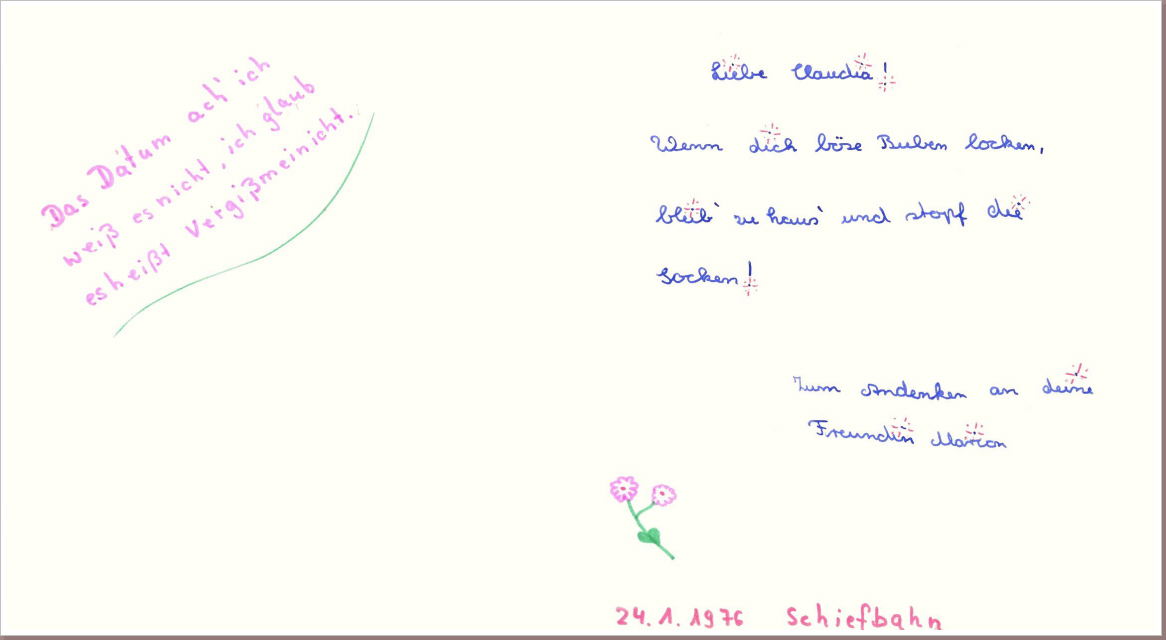 Das Datum ach' ich
weiß es nicht, ich glaub
es heißt Vergißmeinicht.
Liebe Claudia!
Wenn dich böse Buben locken,
bleib' zu haus' und stopf die
Socken!
Zum Andenken an deine
Freundin Marion
24.1.1976 Schiefbahn